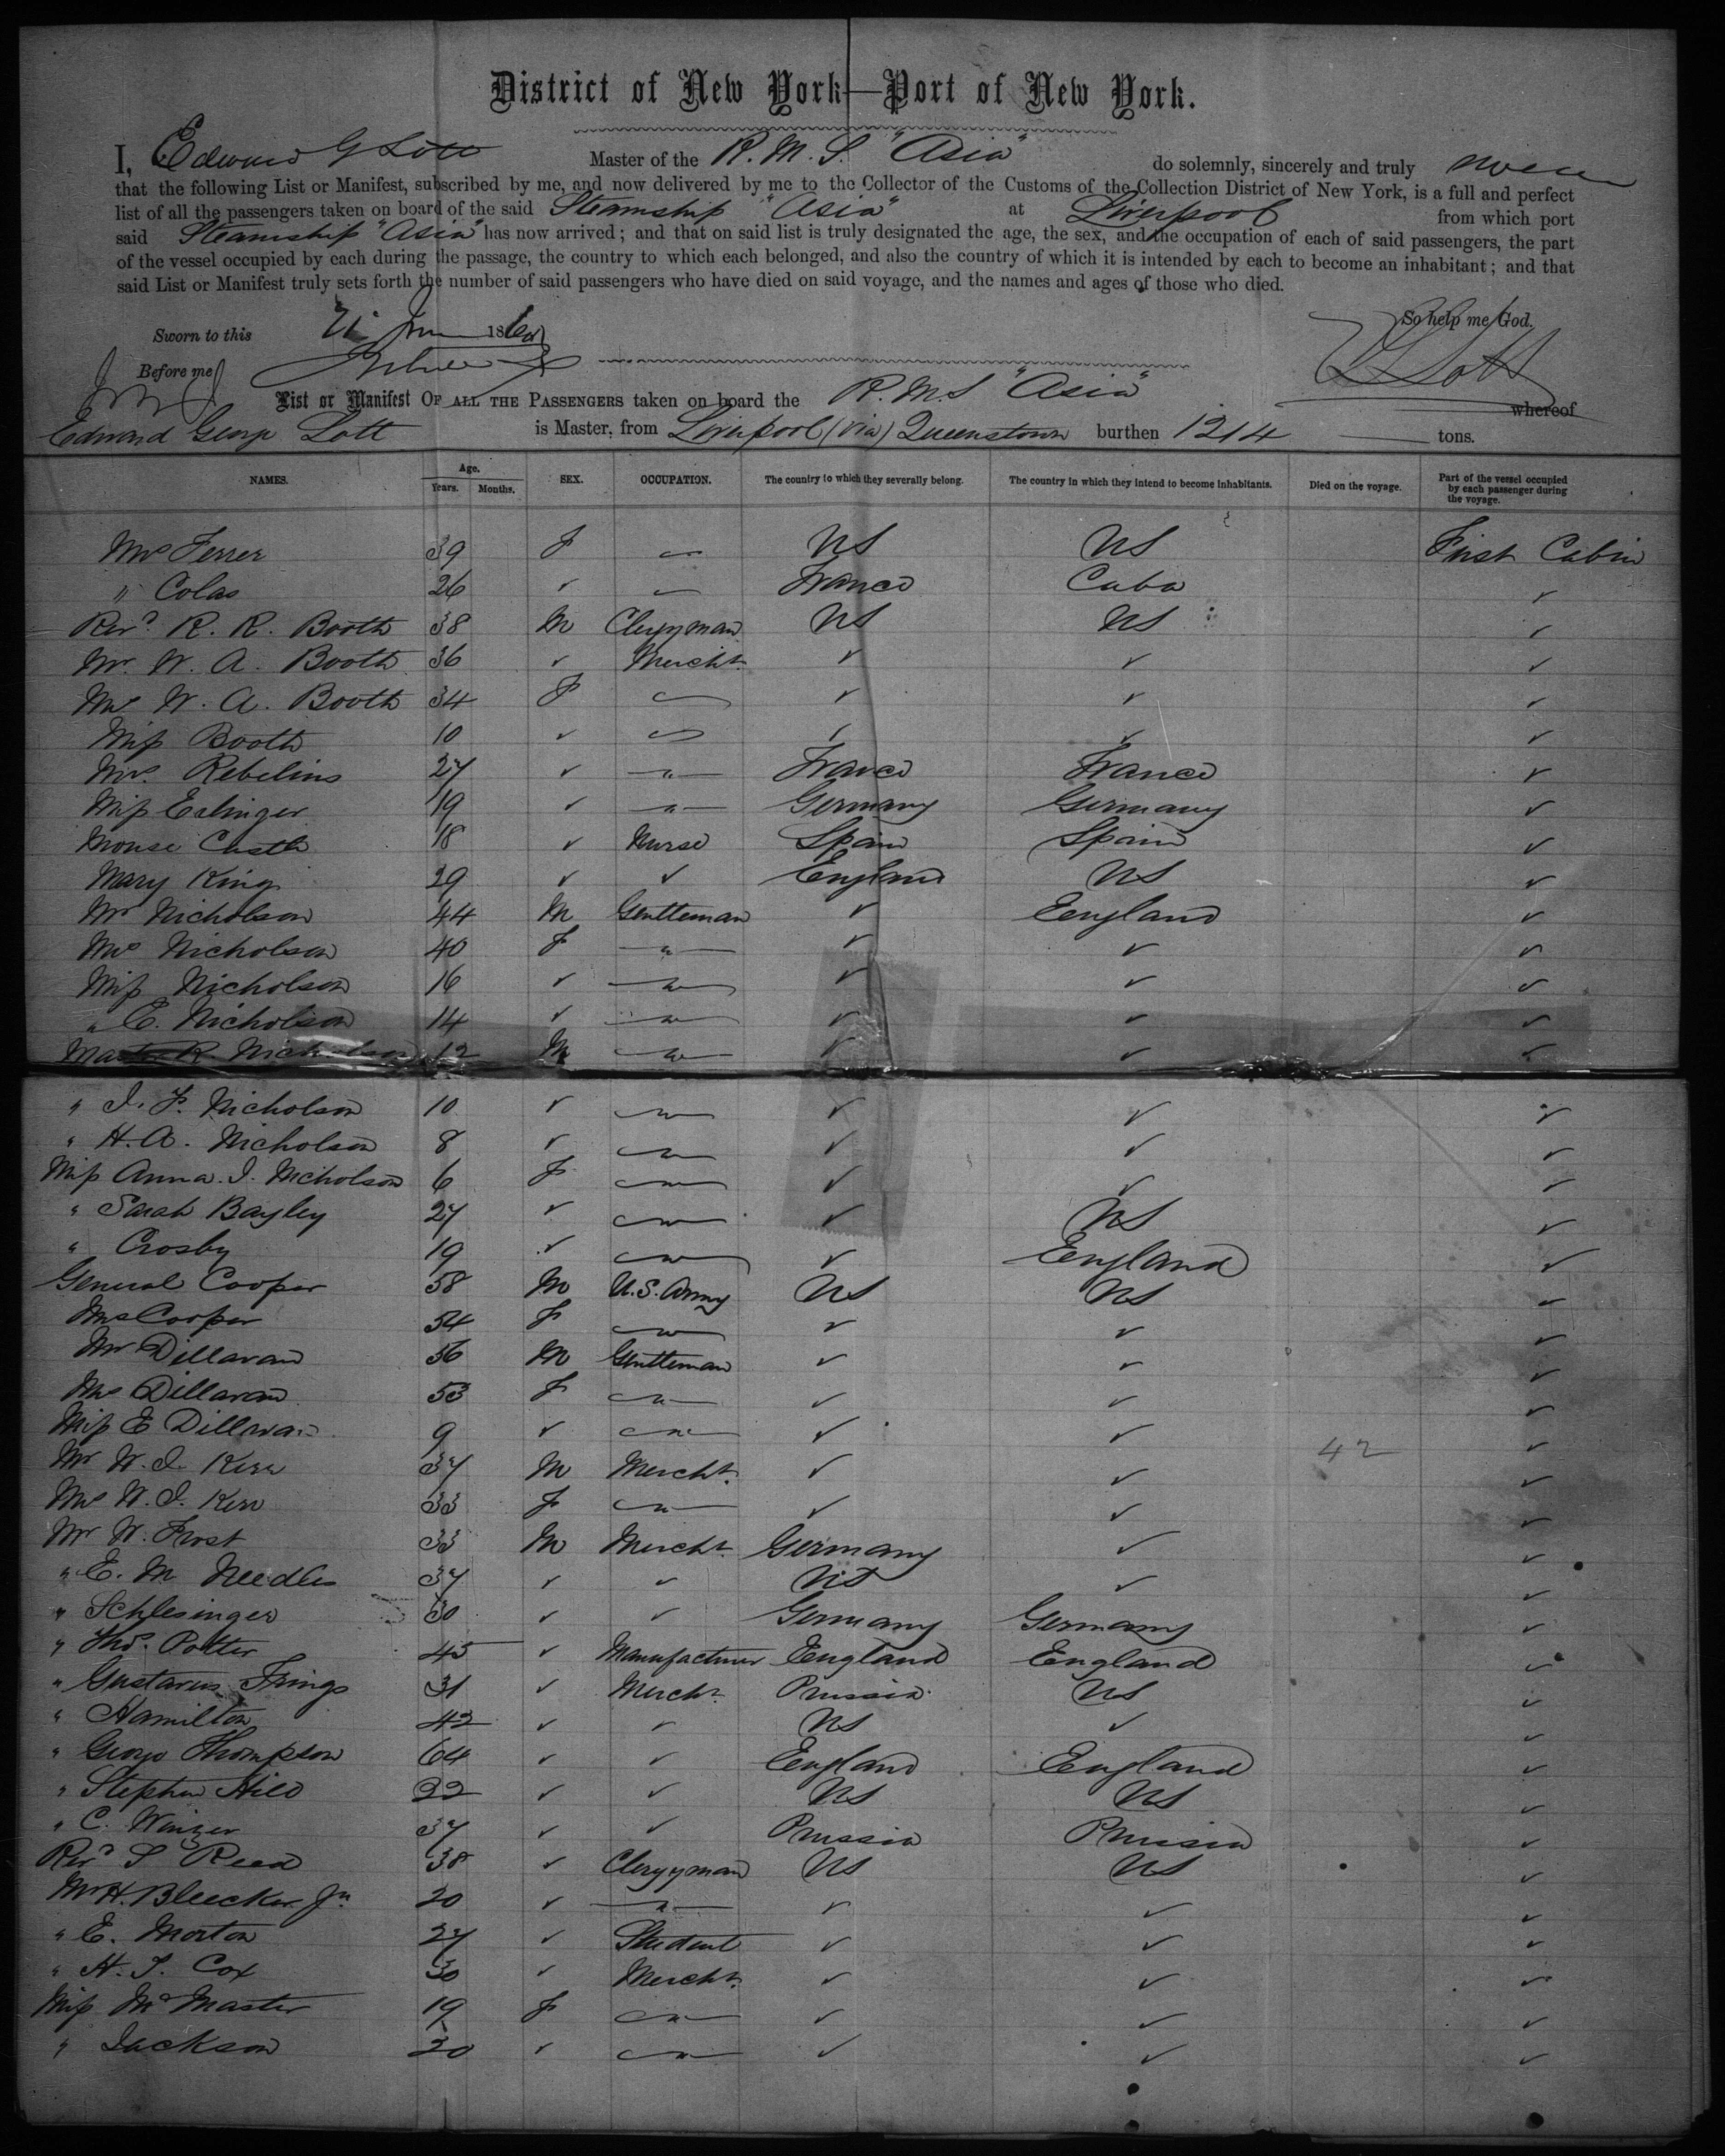 District of New York—Port of New York.
I, Edward G Lott Master of the R. M. S. "Asia" do solemnly, sincerely and truly swear
that the following List or Manifest, subscribed by me, and now delivered by me to the Collector of the Customs of the Collection District of New York, is a full and perfect
list of all the passengers taken on board of the said Steamship "Asia" at Liverpool from which port
said Steamship "Asia" has now arrived; and that on said list is truly designated the age, the sex, and the occupation of each of said passengers, the part
of the vessel occupied by each during the passage, the country to which each belonged, and also the country of which it is intended by each to become an inhabitant; and that
said List or Manifest truly sets forth the number of said passengers who have died on said voyage, and the names and ages of those who died.
So help me God.
Sworn to this 21 186
E G Lott
Before me
List or Manifest OF ALL THE PASSENGERS taken on board the R. M. S "Asia" whereof
Edward George Lott is Master, from Liverpool (via) Queenstown burthen 1214 tons.
NAMES. Age. Years. Months. SEX. OCCUPATION. The country to which they severally belong. The country in which they intend to become inhabitants. Died on the voyage. Part of the vessel occupied by each passenger during the voyage.
Mrs Ferrer 39 F — US US First Cabin
" Colas 26 ✓ — France Cuba ✓
Revd. R. R. Booth 38 M Clergyman US US ✓
Mr. W. A. Booth 36 ✓ Mercht. ✓ ✓ ✓
Mrs W. A. Booth 34 F — ✓ ✓ ✓
Miss Booth 10 ✓ — ✓ ✓ ✓
Mrs. Rebelins 27 ✓ —"— France France ✓
Miss Eslinger 19 ✓ —"— Germany Germany ✓
Mouse Castle 18 ✓ Nurse Spain Spain ✓
Mary King 29 ✓ ✓ England US ✓
Mr Nicholson 44 M Gentleman ✓ England ✓
Mrs Nicholson 40 F —"— ✓ ✓ ✓
Miss Nicholson 16 ✓ —"— ✓ ✓ ✓
" E. Nicholson 14 ✓ —"— ✓ ✓ ✓
Master R. Nicholson 12 M —"— ✓ ✓ ✓
" J. F. Nicholson 10 ✓ —"— ✓ ✓ ✓
" H. A. Nicholson 8 ✓ —"— ✓ ✓ ✓
Miss Anna. J. Nicholson 6 F —"— ✓ ✓ ✓
" Sarah Bayley 27 ✓ —"— ✓ US ✓
" Crosby 19 ✓ —"— ✓ England ✓
General Cooper 58 M U.S. Army US US ✓
Mrs Cooper 54 F —"— ✓ ✓ ✓
Mr Dillavan 56 M Gentleman ✓ ✓ ✓
Mrs Dillavan 53 F —"— ✓ ✓ ✓
Miss E Dillavan 9 ✓ —"— ✓ ✓ 42 ✓
Mr W. J. Kerr 37 M Mercht. ✓ ✓ ✓
Mrs W. J. Kerr 33 F —"— ✓ ✓ ✓
Mr W. Frost 33 M Mercht. Germany ✓ ✓
" E. M Needles 37 ✓ ✓ US ✓ ✓
" Schlesinger 30 ✓ ✓ Germany Germany ✓
" Thos. Potter 45 ✓ Manufacturer England England ✓
" Gustavus Frings 31 ✓ Mercht. Prussia US ✓
" Hamilton 42 ✓ ✓ US ✓ ✓
" George Thompson 64 ✓ ✓ England England ✓
" Stephen Hill 22 ✓ ✓ US US ✓
" C. Winzer 37 ✓ ✓ Prussia Prussia ✓
Revd S Reed 38 ✓ Clergyman US US ✓
Mr H. Bleecker Jr. 20 ✓ —"— ✓ ✓ ✓
" E. Morton 27 ✓ Student ✓ ✓ ✓
" H. J. Cox 30 ✓ Mercht. ✓ ✓ ✓
Miss McMaster 19 F —"— ✓ ✓ ✓
" Jackson 20 ✓ —"— ✓ ✓ ✓